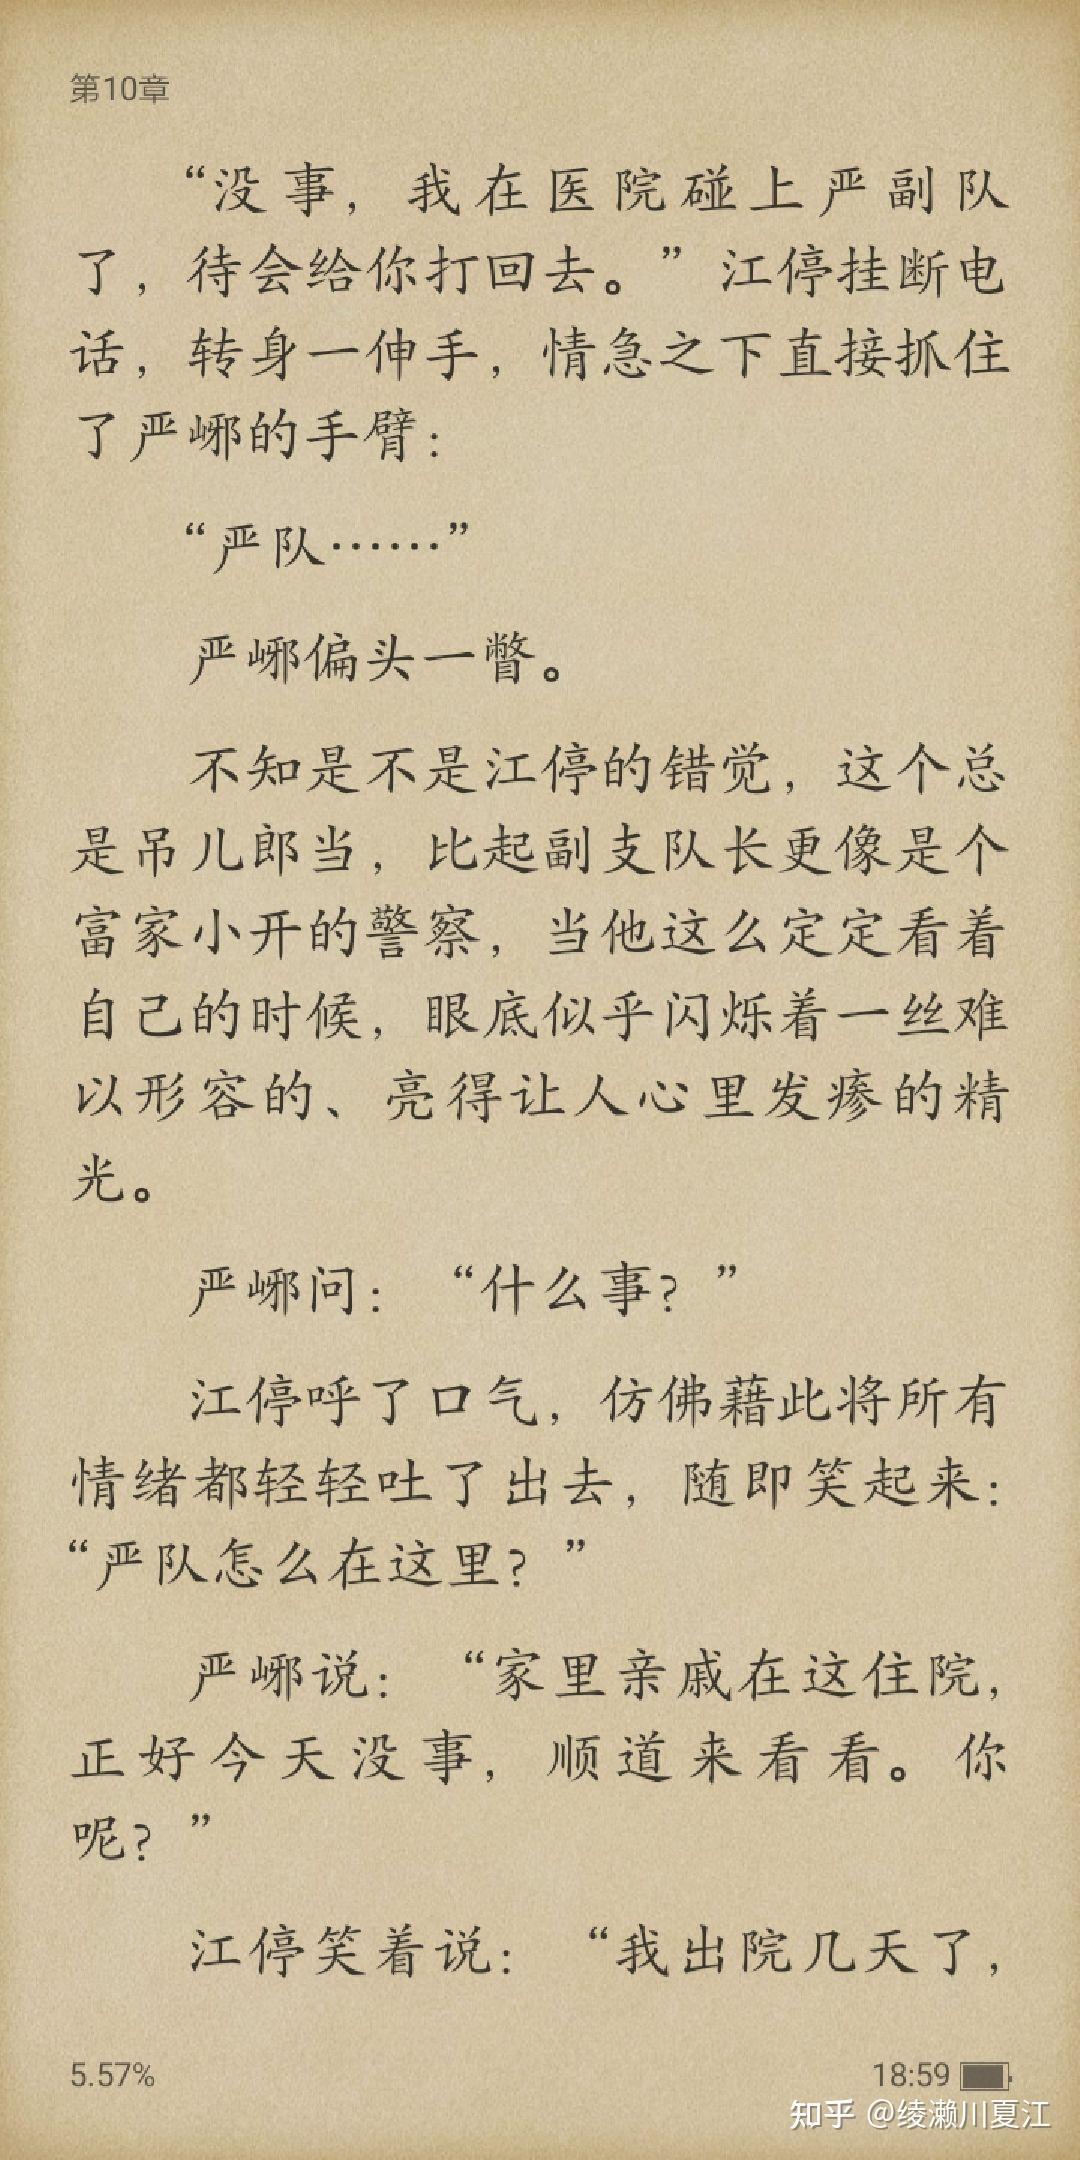 第10章
“没事，我在医院碰上严副队
了，待会给你打回去。”江停挂断电
话，转身一伸手，情急之下直接抓住
了严峫的手臂：
“严队……”
严峫偏头一瞥。
不知是不是江停的错觉，这个总
是吊儿郎当，比起副支队长更像是个
富家小开的警察，当他这么定定看着
自己的时候，眼底似乎闪烁着一丝难
以形容的、亮得让人心里发瘆的精
光。
严峫问：“什么事？”
江停呼了口气，仿佛藉此将所有
情绪都轻轻吐了出去，随即笑起来：
“严队怎么在这里？”
严峫说：“家里亲戚在这住院，
正好今天没事，顺道来看看。你
呢？”
江停笑着说：“我出院几天了，
5.57%
18:59
知乎 @绫濑川夏江